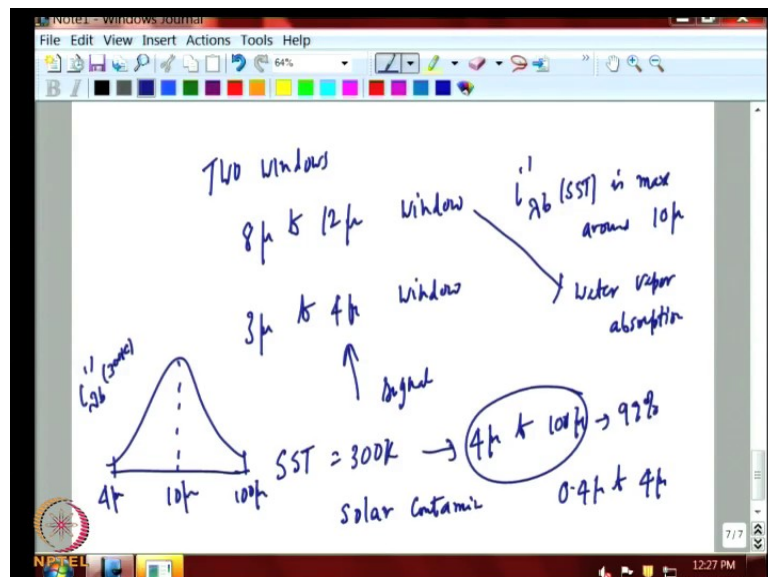 Note1 - Windows Journal
File Edit View Insert Actions Tools Help
64%
B I
Two windows
8μ to 12μ window
i'λb (SST) is max
around 10μ
3μ to 4μ window
Water vapor
absorption
signal
i'λb (300K)
SST = 300K → 4μ to 100μ → 99%
4μ 10μ 100μ
Solar Contamin
0.4μ to 4μ
7/7
NPTEL
12:27 PM